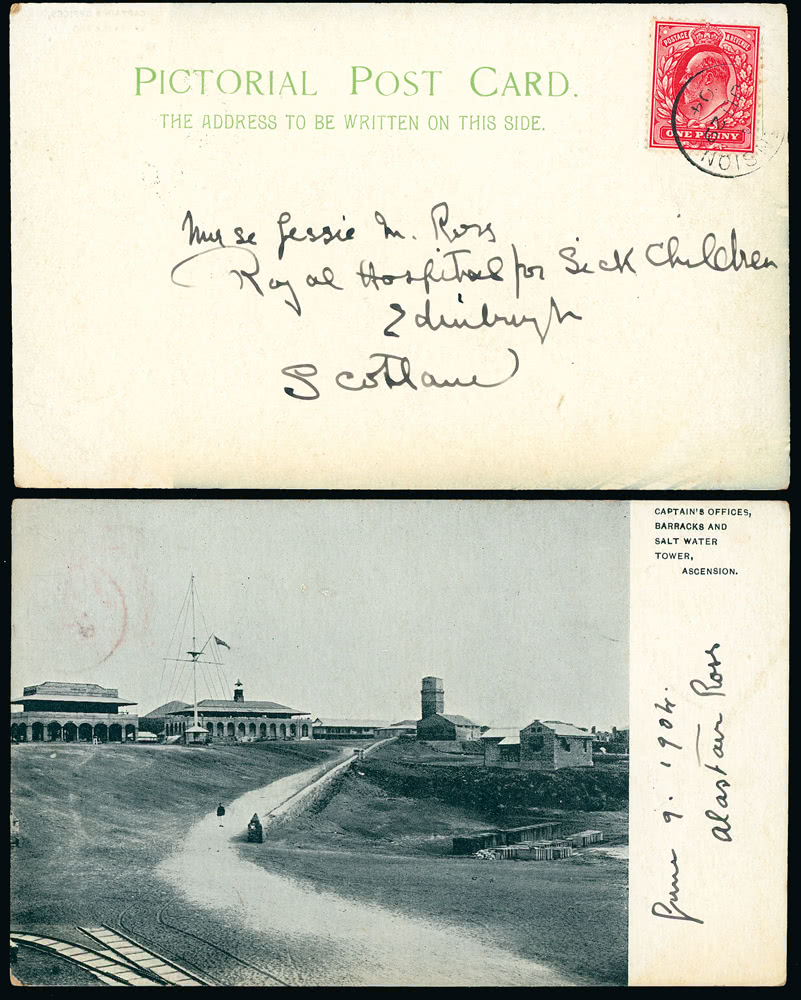 PICTORIAL POST CARD.
THE ADDRESS TO BE WRITTEN ON THIS SIDE.
POSTAGE REVENUE
ONE PENNY
Nurse Jessie M. Ross
Royal Hospital for Sick Children
Edinburgh
Scotland
CAPTAIN'S OFFICES,
BARRACKS AND
SALT WATER
TOWER,
ASCENSION.
June 9. 1904.
Alastair Ross